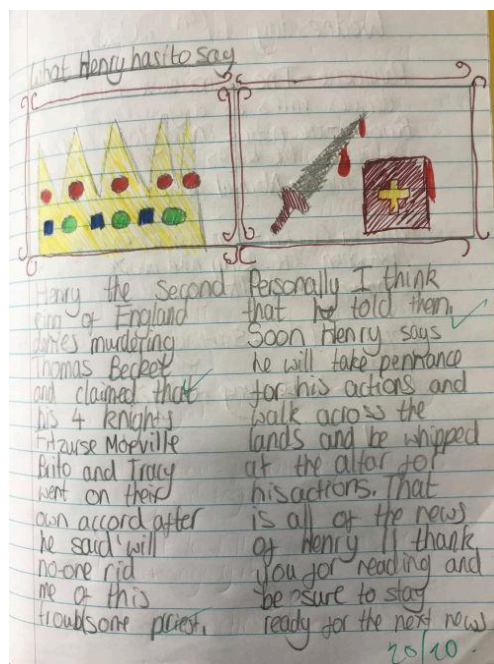 What Henry has to say
Henry the second
king of England
denies murdering
Thomas Becket
and claimed that
his 4 knights
Fitzurse Moeville
Brito and Tracy
went on their
own accord after
he said 'will
no-one rid
me of this
troublsome priest.
Personally I think
that he told them.
Soon Henry says
he will take pennance
for his actions and
walk across the
lands and be whipped
at the altar for
his actions. That
is all of the news
of Henry II thank
you for reading and
be sure to stay
ready for the next news
20/20